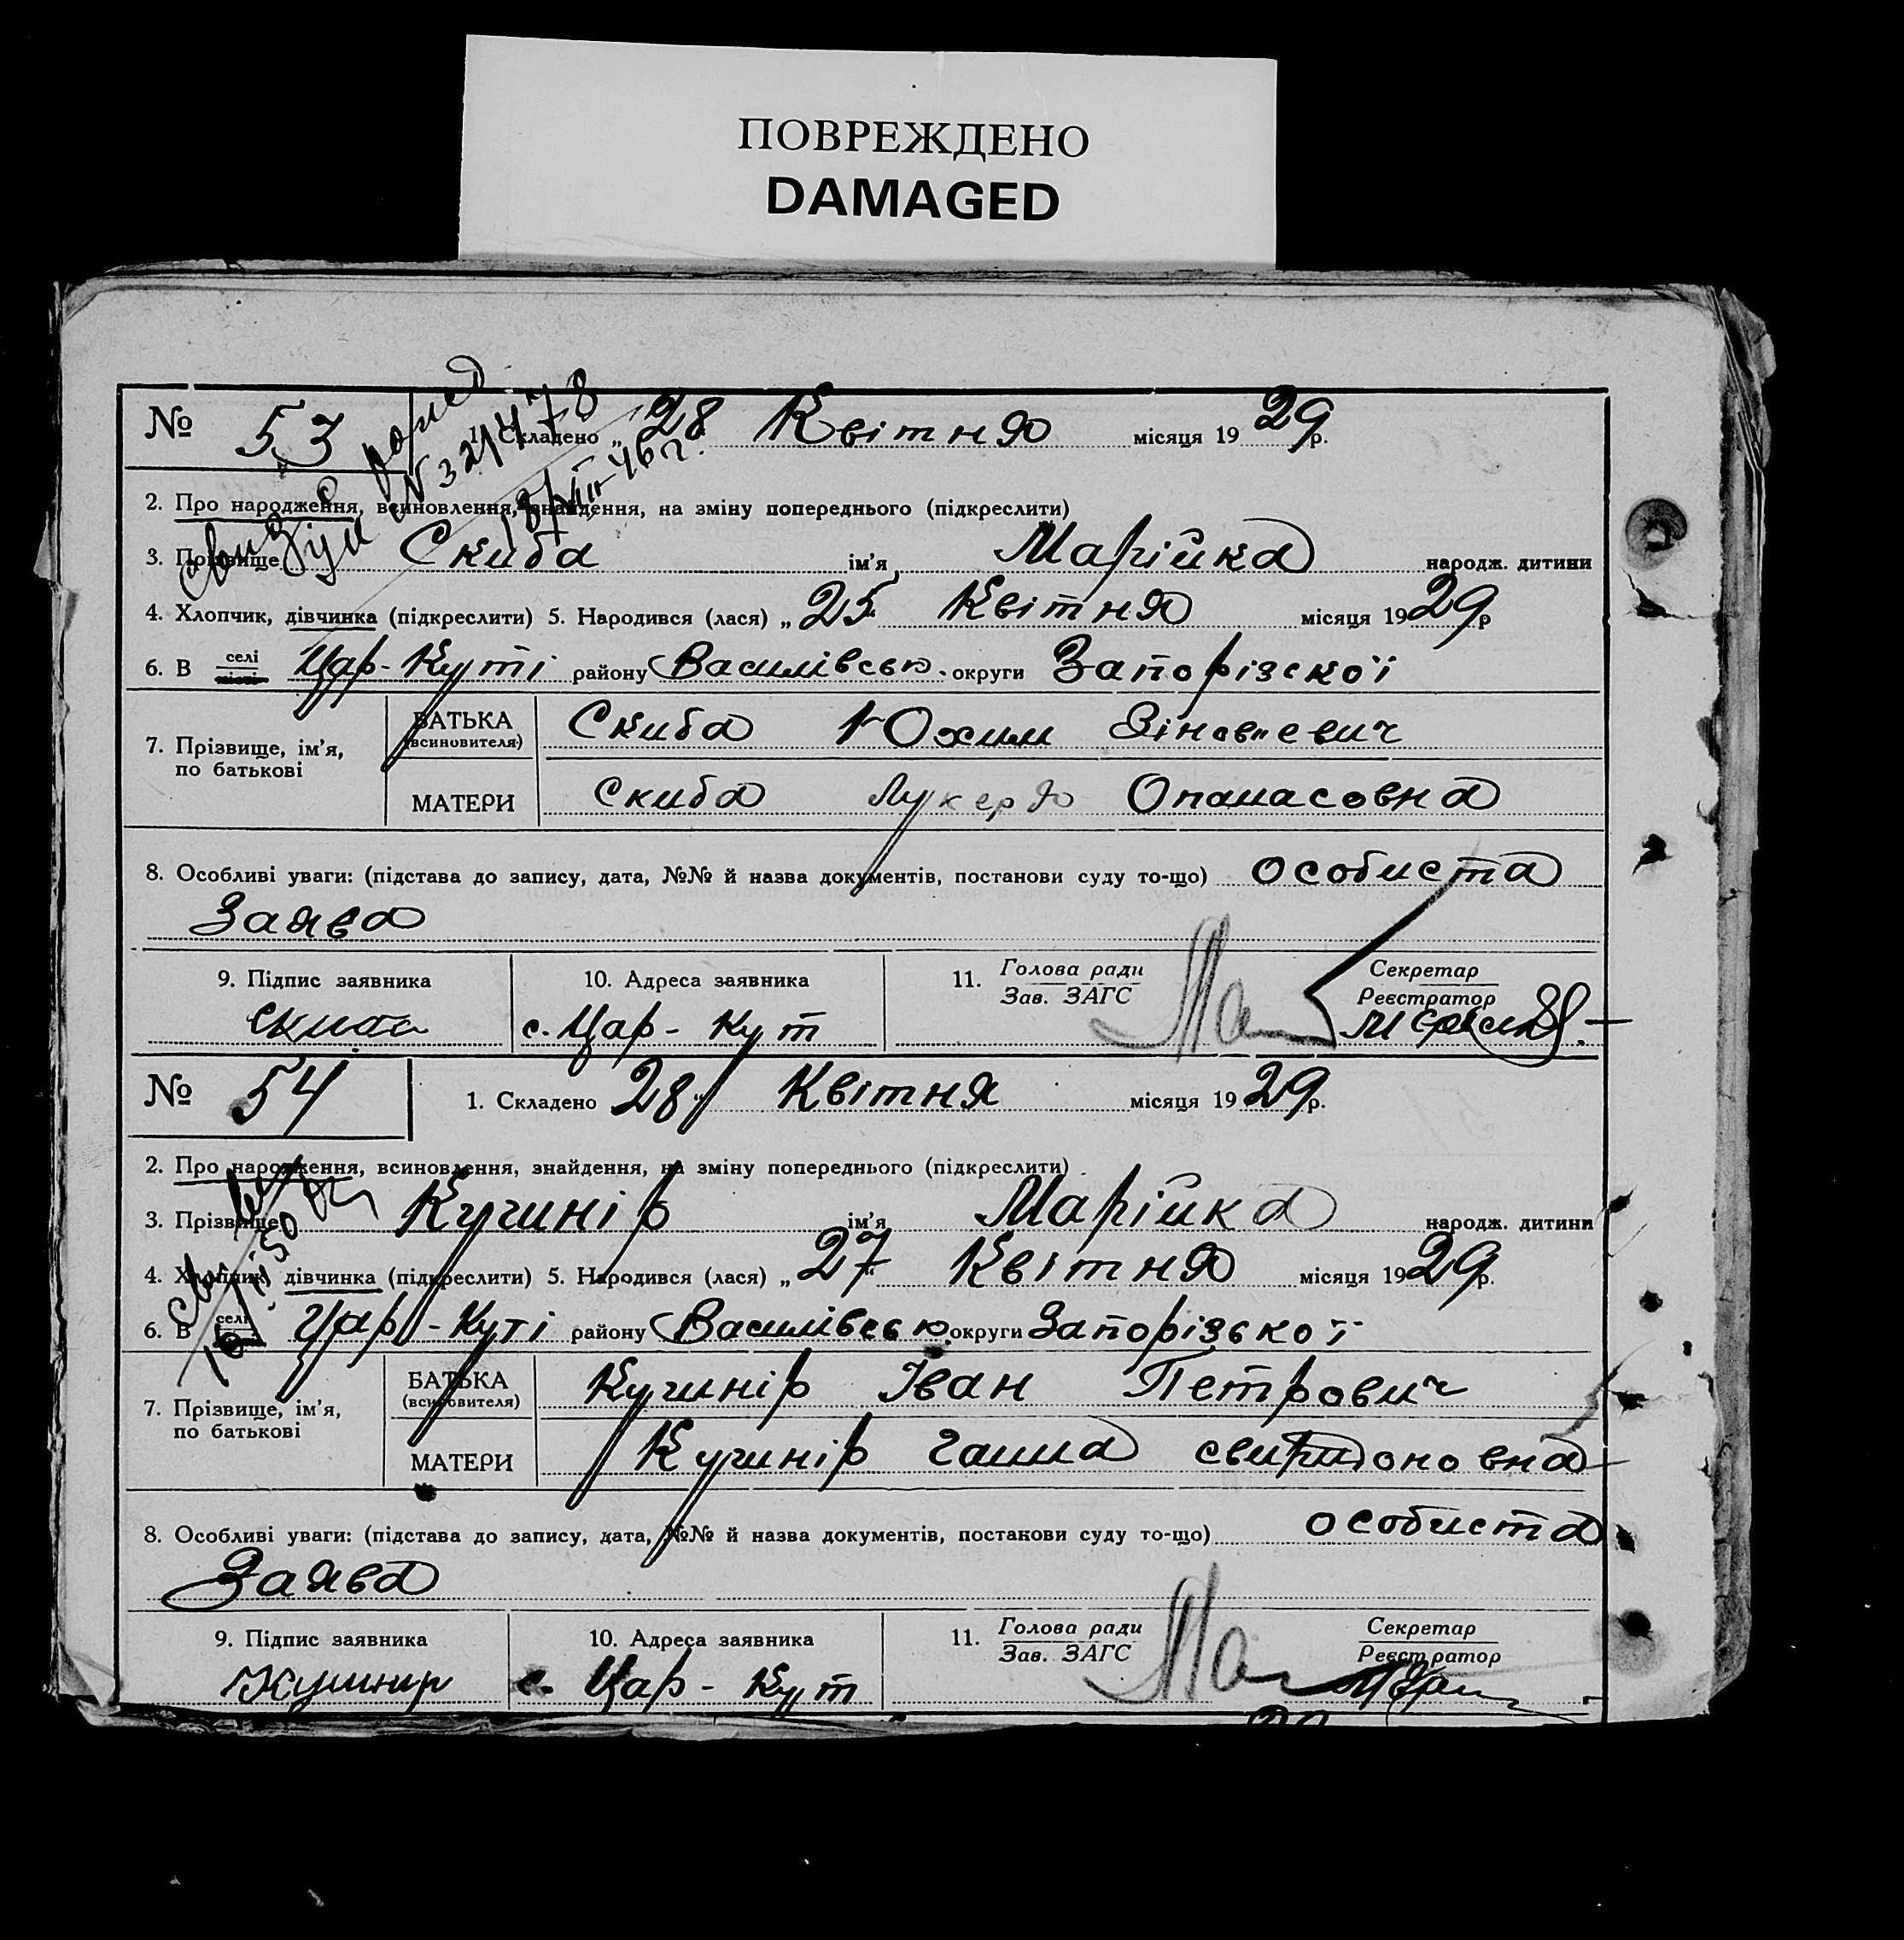 ПОВРЕЖДЕНО
DAMAGED
№ 53
1. Складено „ 28 Квітня місяця 19 29 р.
2. Про народження, всиновлення, знайдення, на зміну попереднього (підкреслити)
3. Прізвище Скиба ім'я Марійка народж. дитини
4. Хлопчик, дівчинка (підкреслити) 5. Народився (лася) „ 25 Квітня місяця 19 29 р
6. В селі Цар-Куті району Василівськ. округи Запорізскої
7. Прізвище, ім'я, по батькові
БАТЬКА (всиновителя) Скиба Юхим Зіновъевич
МАТЕРИ Скиба Лукеря Опанасовна
8. Особливі уваги: (підстава до запису, дата, №№ й назва документів, постанови суду то-що) особиста
Заява
9. Підпис заявника
Скиба
10. Адреса заявника
с. Цар-Кут
11. Голова ради
Зав. ЗАГС
Секретар
Реєстратор
№ 54
1. Складено 28 Квітня місяця 19 29 р.
2. Про народження, всиновлення, знайдення, на зміну попереднього (підкреслити)
3. Прізвище Кушнір ім'я Марійка народж. дитини
4. Хлопчик, дівчинка (підкреслити) 5. Народився (лася) „ 27 Квітня місяця 19 29 р.
6. В селі Цар-Куті району Василівськ. округи Запорізької
7. Прізвище, ім'я, по батькові
БАТЬКА (всиновителя) Кушнір Іван Петрович
МАТЕРИ Кушнір Гаша Свиридоновна
8. Особливі уваги: (підстава до запису, дата, №№ й назва документів, постанови суду то-що) особиста
Заява
9. Підпис заявника
Кушнир
10. Адреса заявника
с. Цар-Кут
11. Голова ради
Зав. ЗАГС
Секретар
Реєстратор